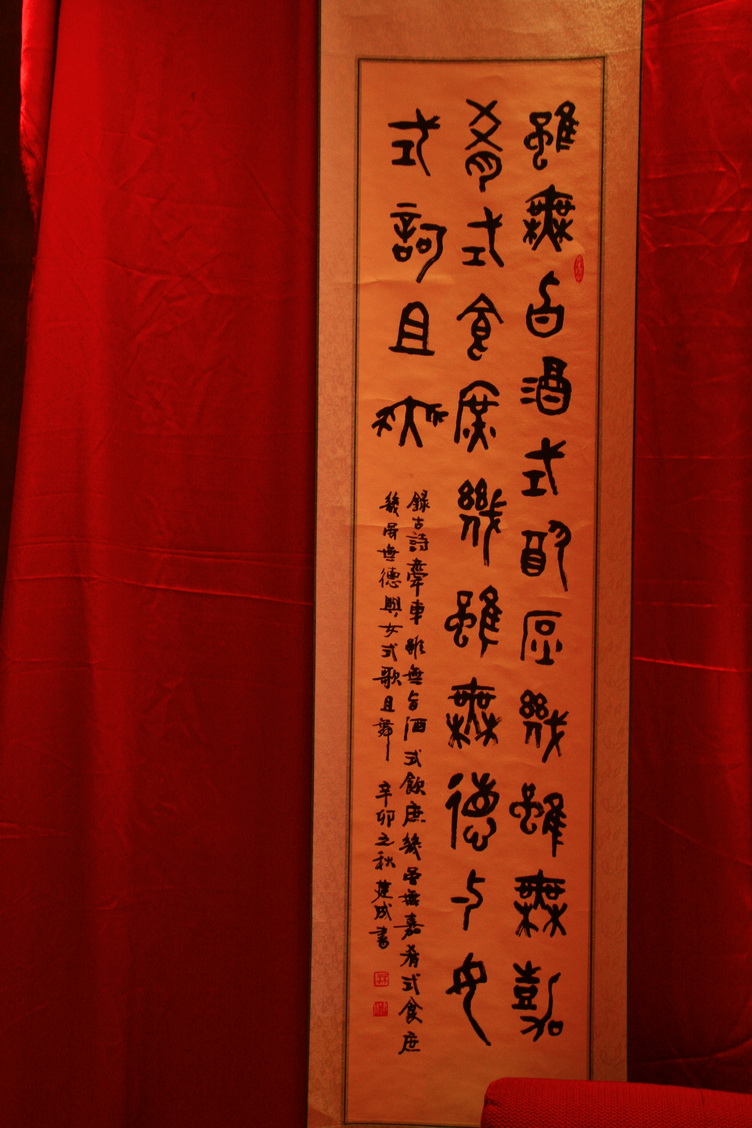 雖無旨酒式飲庶幾雖無嘉
肴式食庶幾雖無德與女
式訶且舞
錄古詩牽車雖無旨酒式飲庶幾雖無嘉肴式食庶
幾雖無德與女式歌且舞 辛卯之秋 建成書